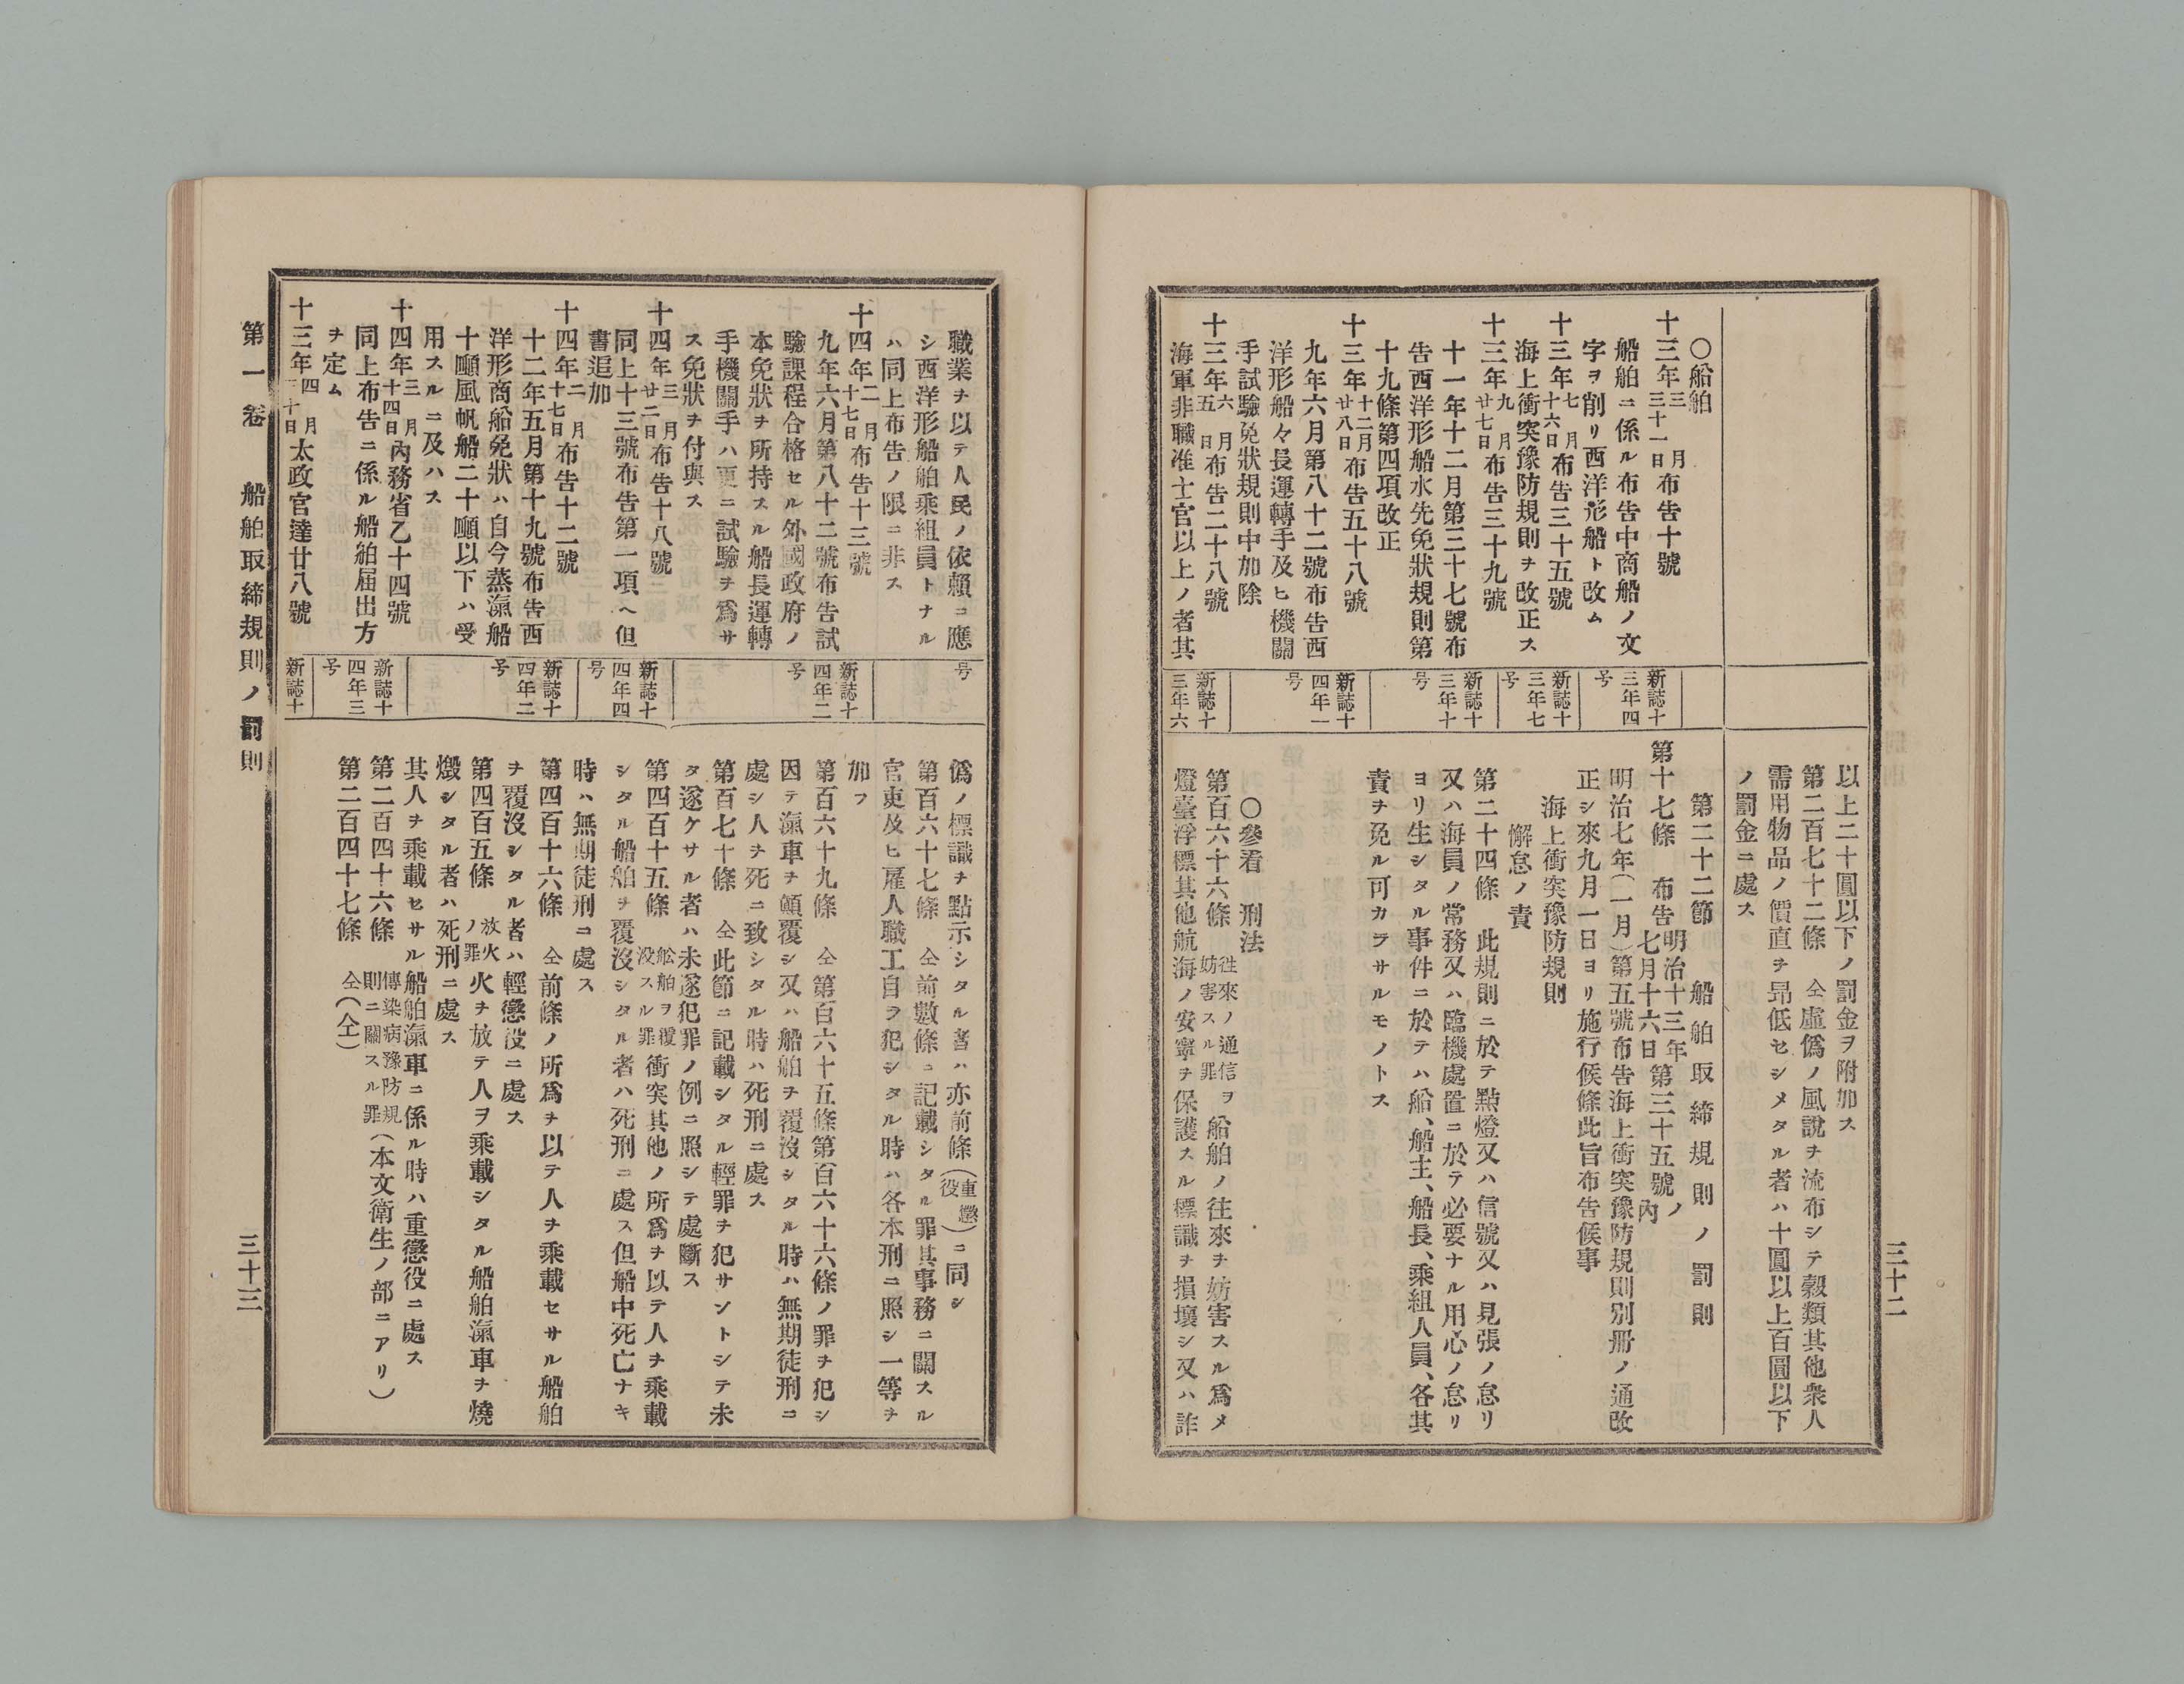 三十二
以上二十圓以下ノ罰金ヲ附加ス
第二百七十二條 仝虛僞ノ風說ヲ流布シテ穀類其他衆人
需用物品ノ價直ヲ昻低セシメタル者ハ十圓以上百圓以下
ノ罰金ニ處ス
〇船舶
十三年三月三十一日布告十號
船舶ニ係ル布告中商船ノ文
字ヲ削リ西洋形船ト改ム
十三年七月十六日布告三十五號
海上衝突豫防規則ヲ改正ス
十三年九月廿七日布告三十九號
十一年十二月第三十七號布
告西洋形船水先免狀規則第
十九條第四項改正
十三年十二月廿八日布告五十八號
九年六月第八十二號布告西
洋形船々長運轉手及ヒ機關
手試驗免狀規則中加除
十三年六月五日布告二十八號
海軍非職准士官以上ノ者其
新誌十
三年四
号
新誌十
三年七
号
新誌十
三年十
号
新誌十
四年一
号
新誌十
三年六
第二十二節 船舶取締規則ノ罰則
第十七條 布告明治十三年七月十六日第三十五號ノ內
明治七年(一月)第五號布告海上衝突豫防規則別册ノ通改
正シ來九月一日ヨリ施行候條此旨布告候事
海上衝突豫防規則
懈怠ノ責
第二十四條 此規則ニ於テ點燈又ハ信號又ハ見張ノ怠リ
又ハ海員ノ常務又ハ臨機處置ニ於テ必要ナル用心ノ怠リ
ヨリ生シタル事件ニ於テハ船、船主、船長、乘組人員、各其
責ヲ免ル可カラサルモノトス
〇參看 刑法
第百六十六條 往來ノ通信ヲ妨害スル罪 船舶ノ往來ヲ妨害スル爲メ
燈臺浮標其他航海ノ安寧ヲ保護スル標識ヲ損壞シ又ハ詐
職業ヲ以テ人民ノ依賴ニ應
シ西洋形船舶乘組員トナル
ハ同上布告ノ限ニ非ス
十四年二月十七日布告十三號
九年六月第八十二號布告試
驗課程合格セル外國政府ノ
本免狀ヲ所持スル船長運轉
手機關手ハ更ニ試驗ヲ爲サ
ス免狀ヲ付與ス
十四年三月廿二日布告十八號
同上十三號布告第一項ヘ但
書追加
十四年二月十七日布告十二號
十二年五月第十九號布告西
洋形商船免狀ハ自今蒸滊船
十噸風帆船二十噸以下ハ受
用スルニ及ハス
十四年三月十四日內務省乙十四號
同上布告ニ係ル船舶届出方
ヲ定ム
十三年四月三十日太政官達廿八號
号
新誌十
四年二
号
新誌十
四年四
号
新誌十
四年二
号
新誌十
四年三
号
新誌十
僞ノ標識ヲ點示シタル者ハ亦前條(重懲役)ニ同シ
第百六十七條 仝前數條ニ記載シタル罪其事務ニ關スル
官吏及ヒ雇人職工自ラ犯シタル時ハ各本刑ニ照シ一等ヲ
加フ
第百六十九條 仝第百六十五條第百六十六條ノ罪ヲ犯シ
因テ滊車ヲ顚覆シ又ハ船舶ヲ覆沒シタル時ハ無期徒刑ニ
處シ人ヲ死ニ致シタル時ハ死刑ニ處ス
第百七十條 仝此節ニ記載シタル輕罪ヲ犯サントシテ未
タ遂ケサル者ハ未遂犯罪ノ例ニ照シテ處斷ス
第四百十五條 船舶ヲ覆沒スル罪 衝突其他ノ所爲ヲ以テ人ヲ乘載
シタル船舶ヲ覆沒シタル者ハ死刑ニ處ス但船中死亡ナキ
時ハ無期徒刑ニ處ス
第四百十六條 仝前條ノ所爲ヲ以テ人ヲ乘載セサル船舶
ヲ覆沒シタル者ハ輕懲役ニ處ス
第四百五條 放火ノ罪 火ヲ放テ人ヲ乘載シタル船舶滊車ヲ燒
燬シタル者ハ死刑ニ處ス
其人ヲ乘載セサル船舶滊車ニ係ル時ハ重懲役ニ處ス
第二百四十六條 傳染病豫防規則ニ關スル罪 (本文衛生ノ部ニアリ)
第二百四十七條 仝(仝)
第一卷 船舶取締規則ノ罰則
三十三